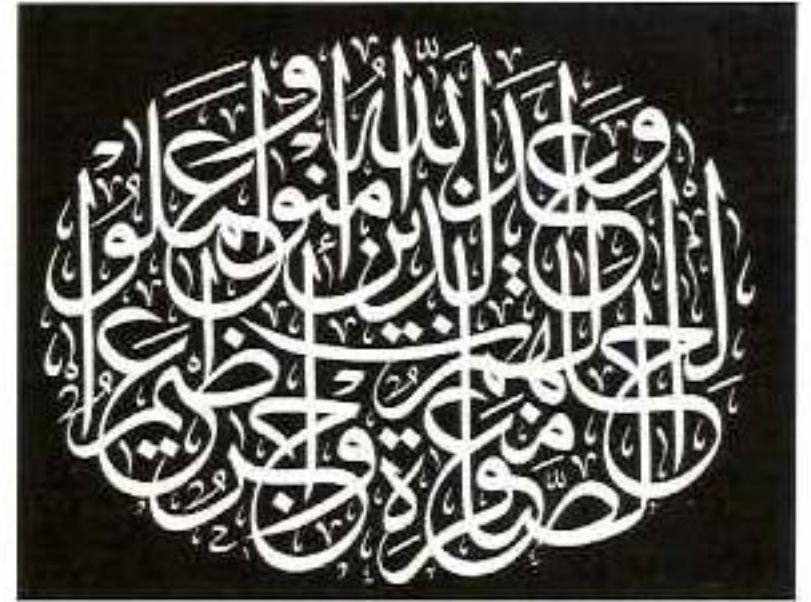 وَعَدَ اللَّهُ الَّذِينَ آمَنُوا وَعَمِلُوا الصَّالِحَاتِ لَهُم مَّغْفِرَةٌ وَأَجْرٌ عَظِيمٌ